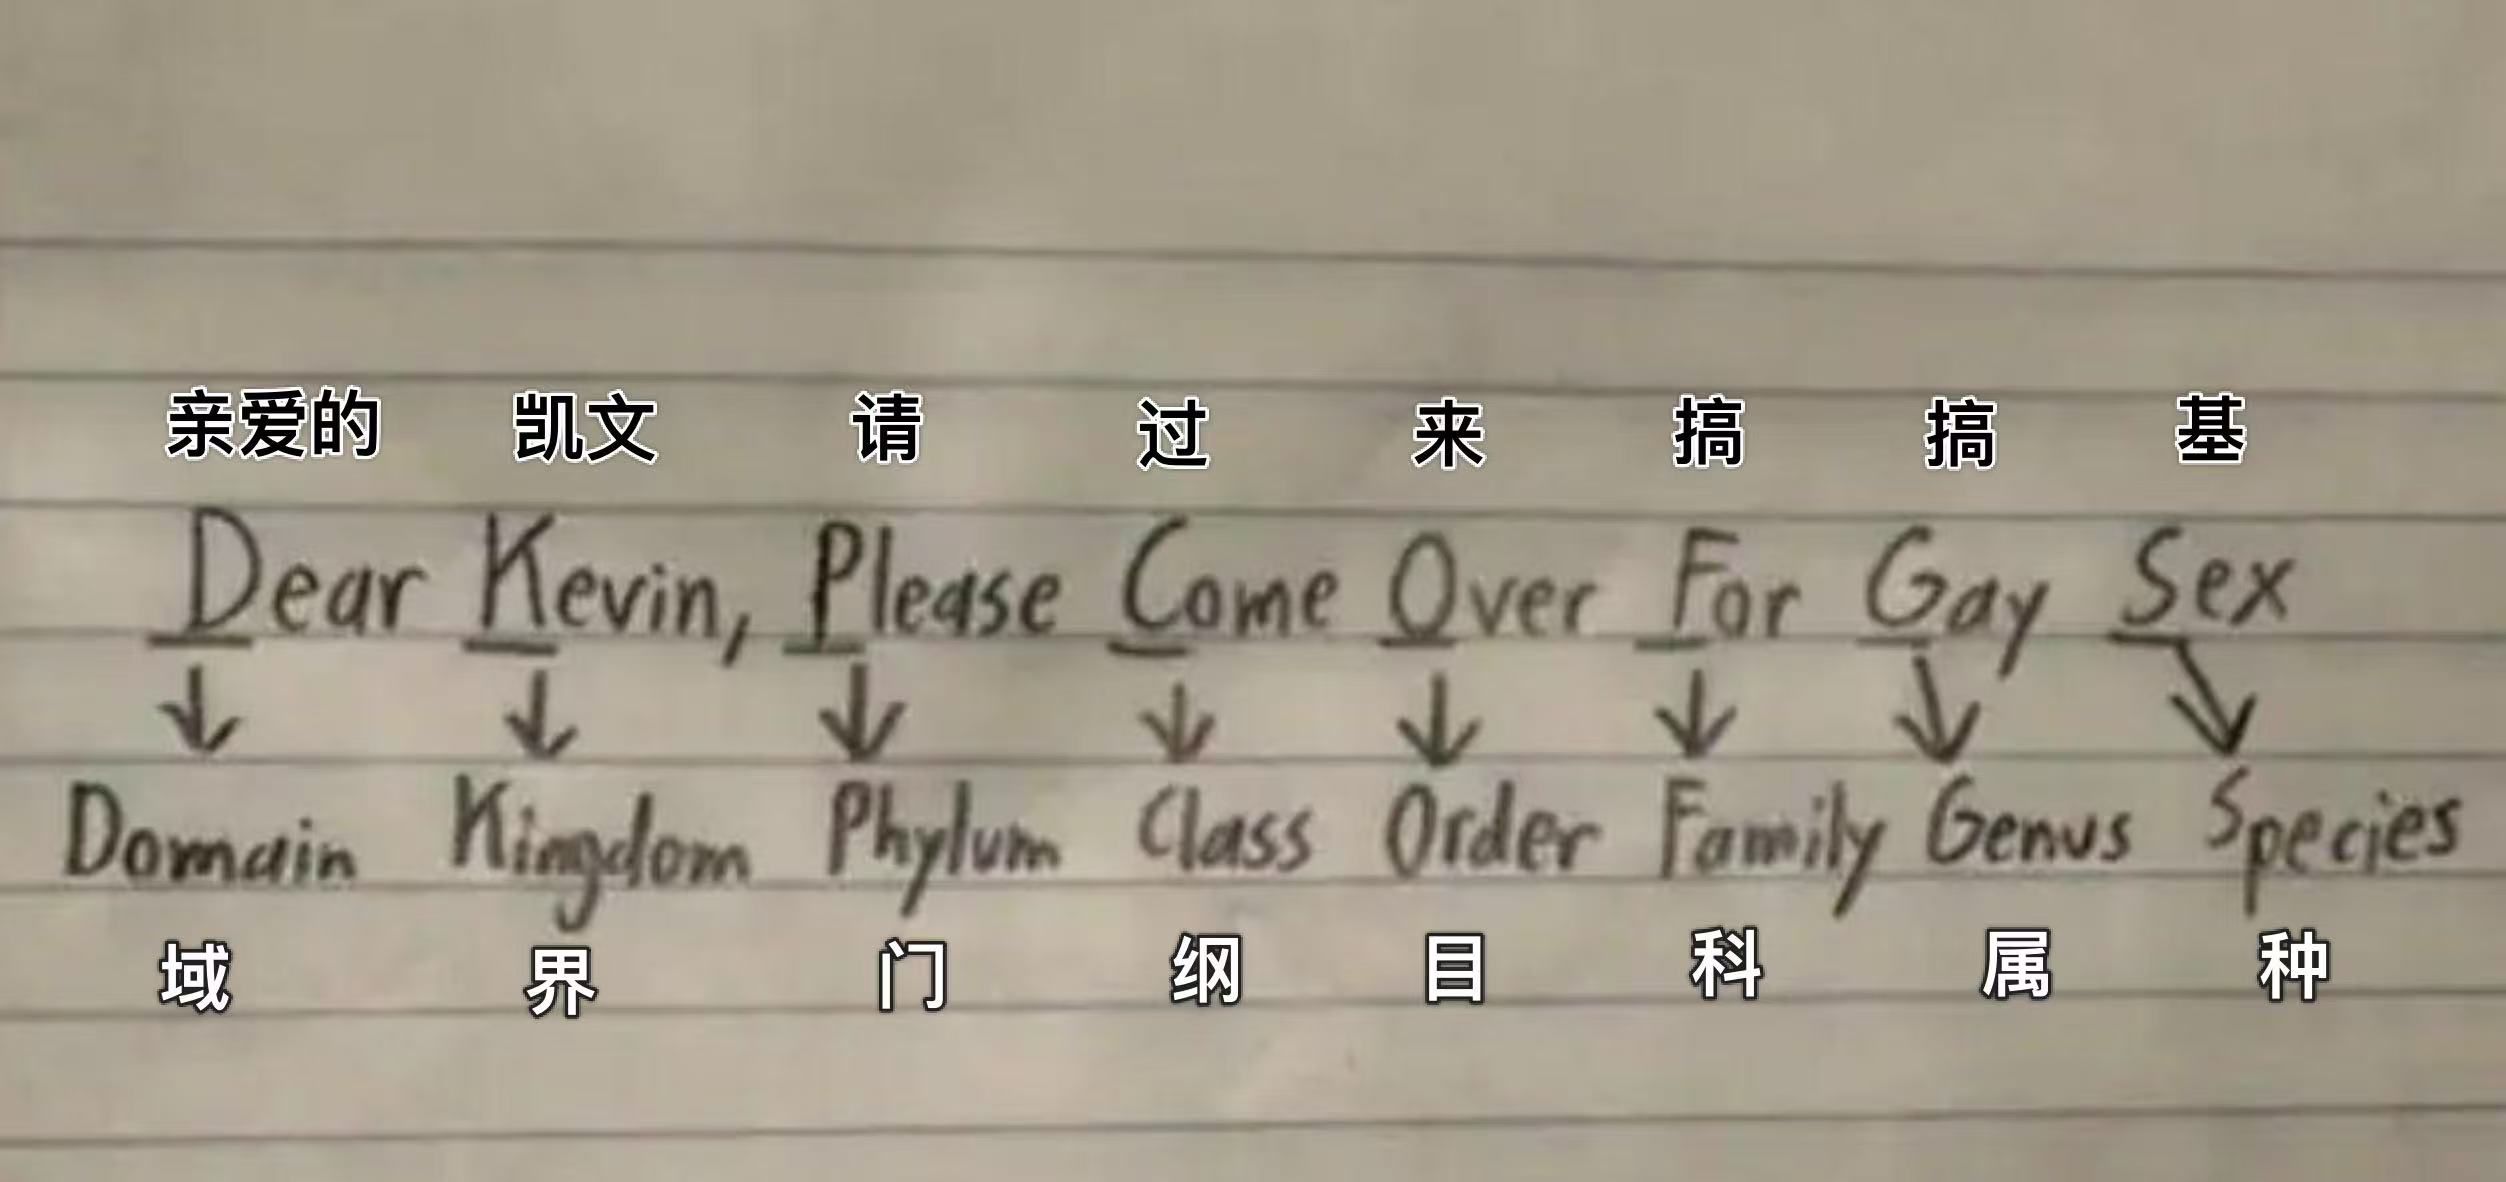 亲爱的 凯文 请 过 来 搞 搞 基
Dear Kevin, Please Come Over For Gay Sex
Domain Kingdom Phylum Class Order Family Genus Species
域 界 门 纲 目 科 属 种